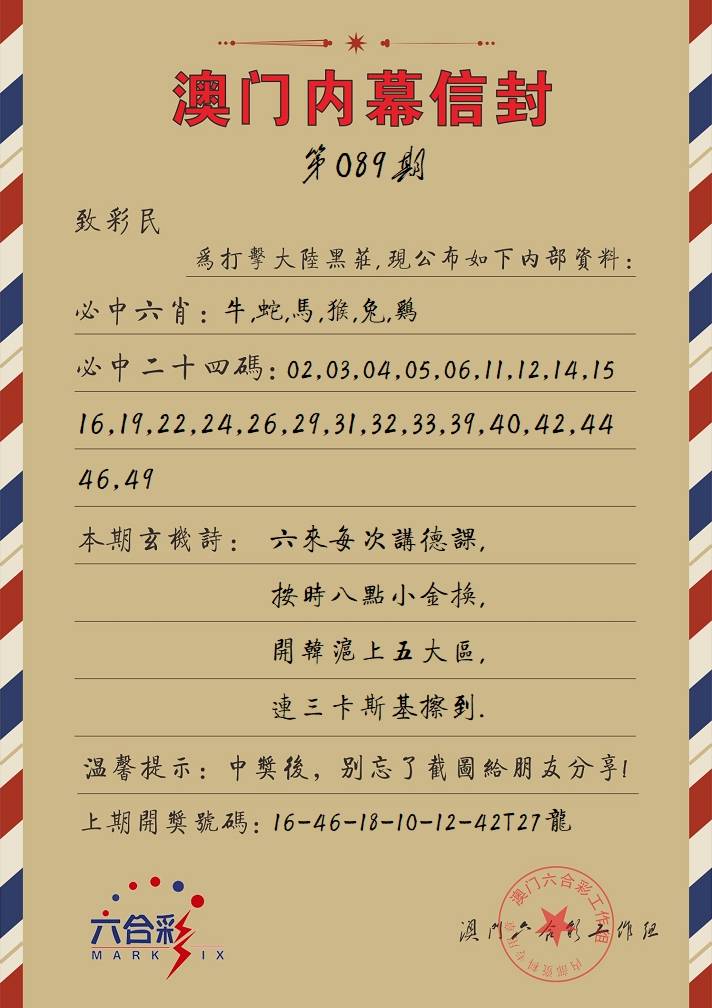 澳门内幕信封
第089期
致彩民
為打擊大陸黑莊,現公布如下内部資料:
必中六肖:牛,蛇,馬,猴,兔,鷄
必中二十四碼:02,03,04,05,06,11,12,14,15
16,19,22,24,26,29,31,32,33,39,40,42,44
46,49
本期玄機詩: 六來每次講德課,
按時八點小金换,
開韓滬上五大區,
連三卡斯基擦到.
温馨提示: 中獎後, 别忘了截圖給朋友分享!
上期開獎號碼:16-46-18-10-12-42T27龍
六合彩
MARK SIX
澳门六合彩工作组
澳门六合彩工作组
内部资料专用章